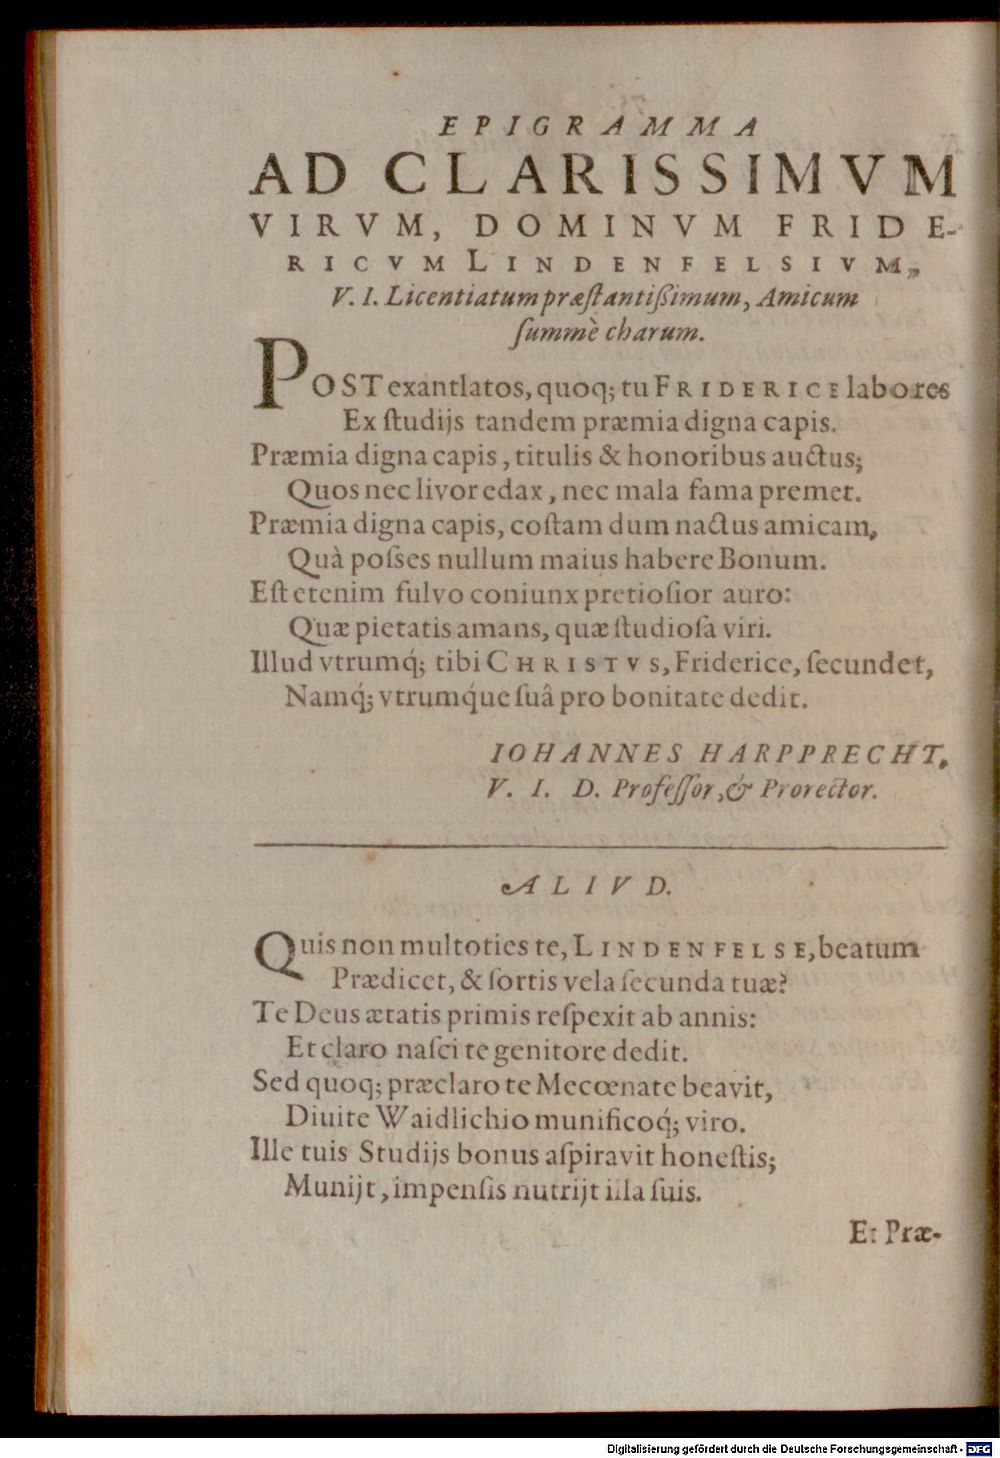 EPIGRAMMA
AD CLARISSIMVM
VIRVM, DOMINVM FRIDE-
RICVM LINDENFELSIVM,
V. I. Licentiatum præſtantißimum, Amicum
ſummè charum.
POST exantlatos, quoq; tu FRIDERICE labores
Ex ſtudijs tandem præmia digna capis.
Præmia digna capis, titulis & honoribus auctus;
Quos nec livor edax, nec mala fama premet.
Præmia digna capis, coſtam dum nactus amicam,
Quà poſses nullum maius habere Bonum.
Eſt etenim fulvo coniunx pretioſior auro:
Quæ pietatis amans, quæ ſtudioſa viri.
Illud vtrumq́; tibi CHRISTVS, Friderice, ſecundet,
Namq́; vtrumq́ue ſuâ pro bonitate dedit.
IOHANNES HARPPRECHT,
V. I. D. Profeſſor, & Prorector.
ALIVD.
Quis non multoties te, LINDENFELSE, beatum
Prædicet, & ſortis vela ſecunda tuæ?
Te Deus ætatis primis reſpexit ab annis:
Et claro naſci te genitore dedit.
Sed quoq; præclaro te Mecœnate beavit,
Diuite Waidlichio munificoq́; viro.
Ille tuis Studijs bonus aſpiravit honeſtis;
Munijt, impenſis nutrijt illa ſuis.
Et Præ-
Digitalisierung gefördert durch die Deutsche Forschungsgemeinschaft - DFG